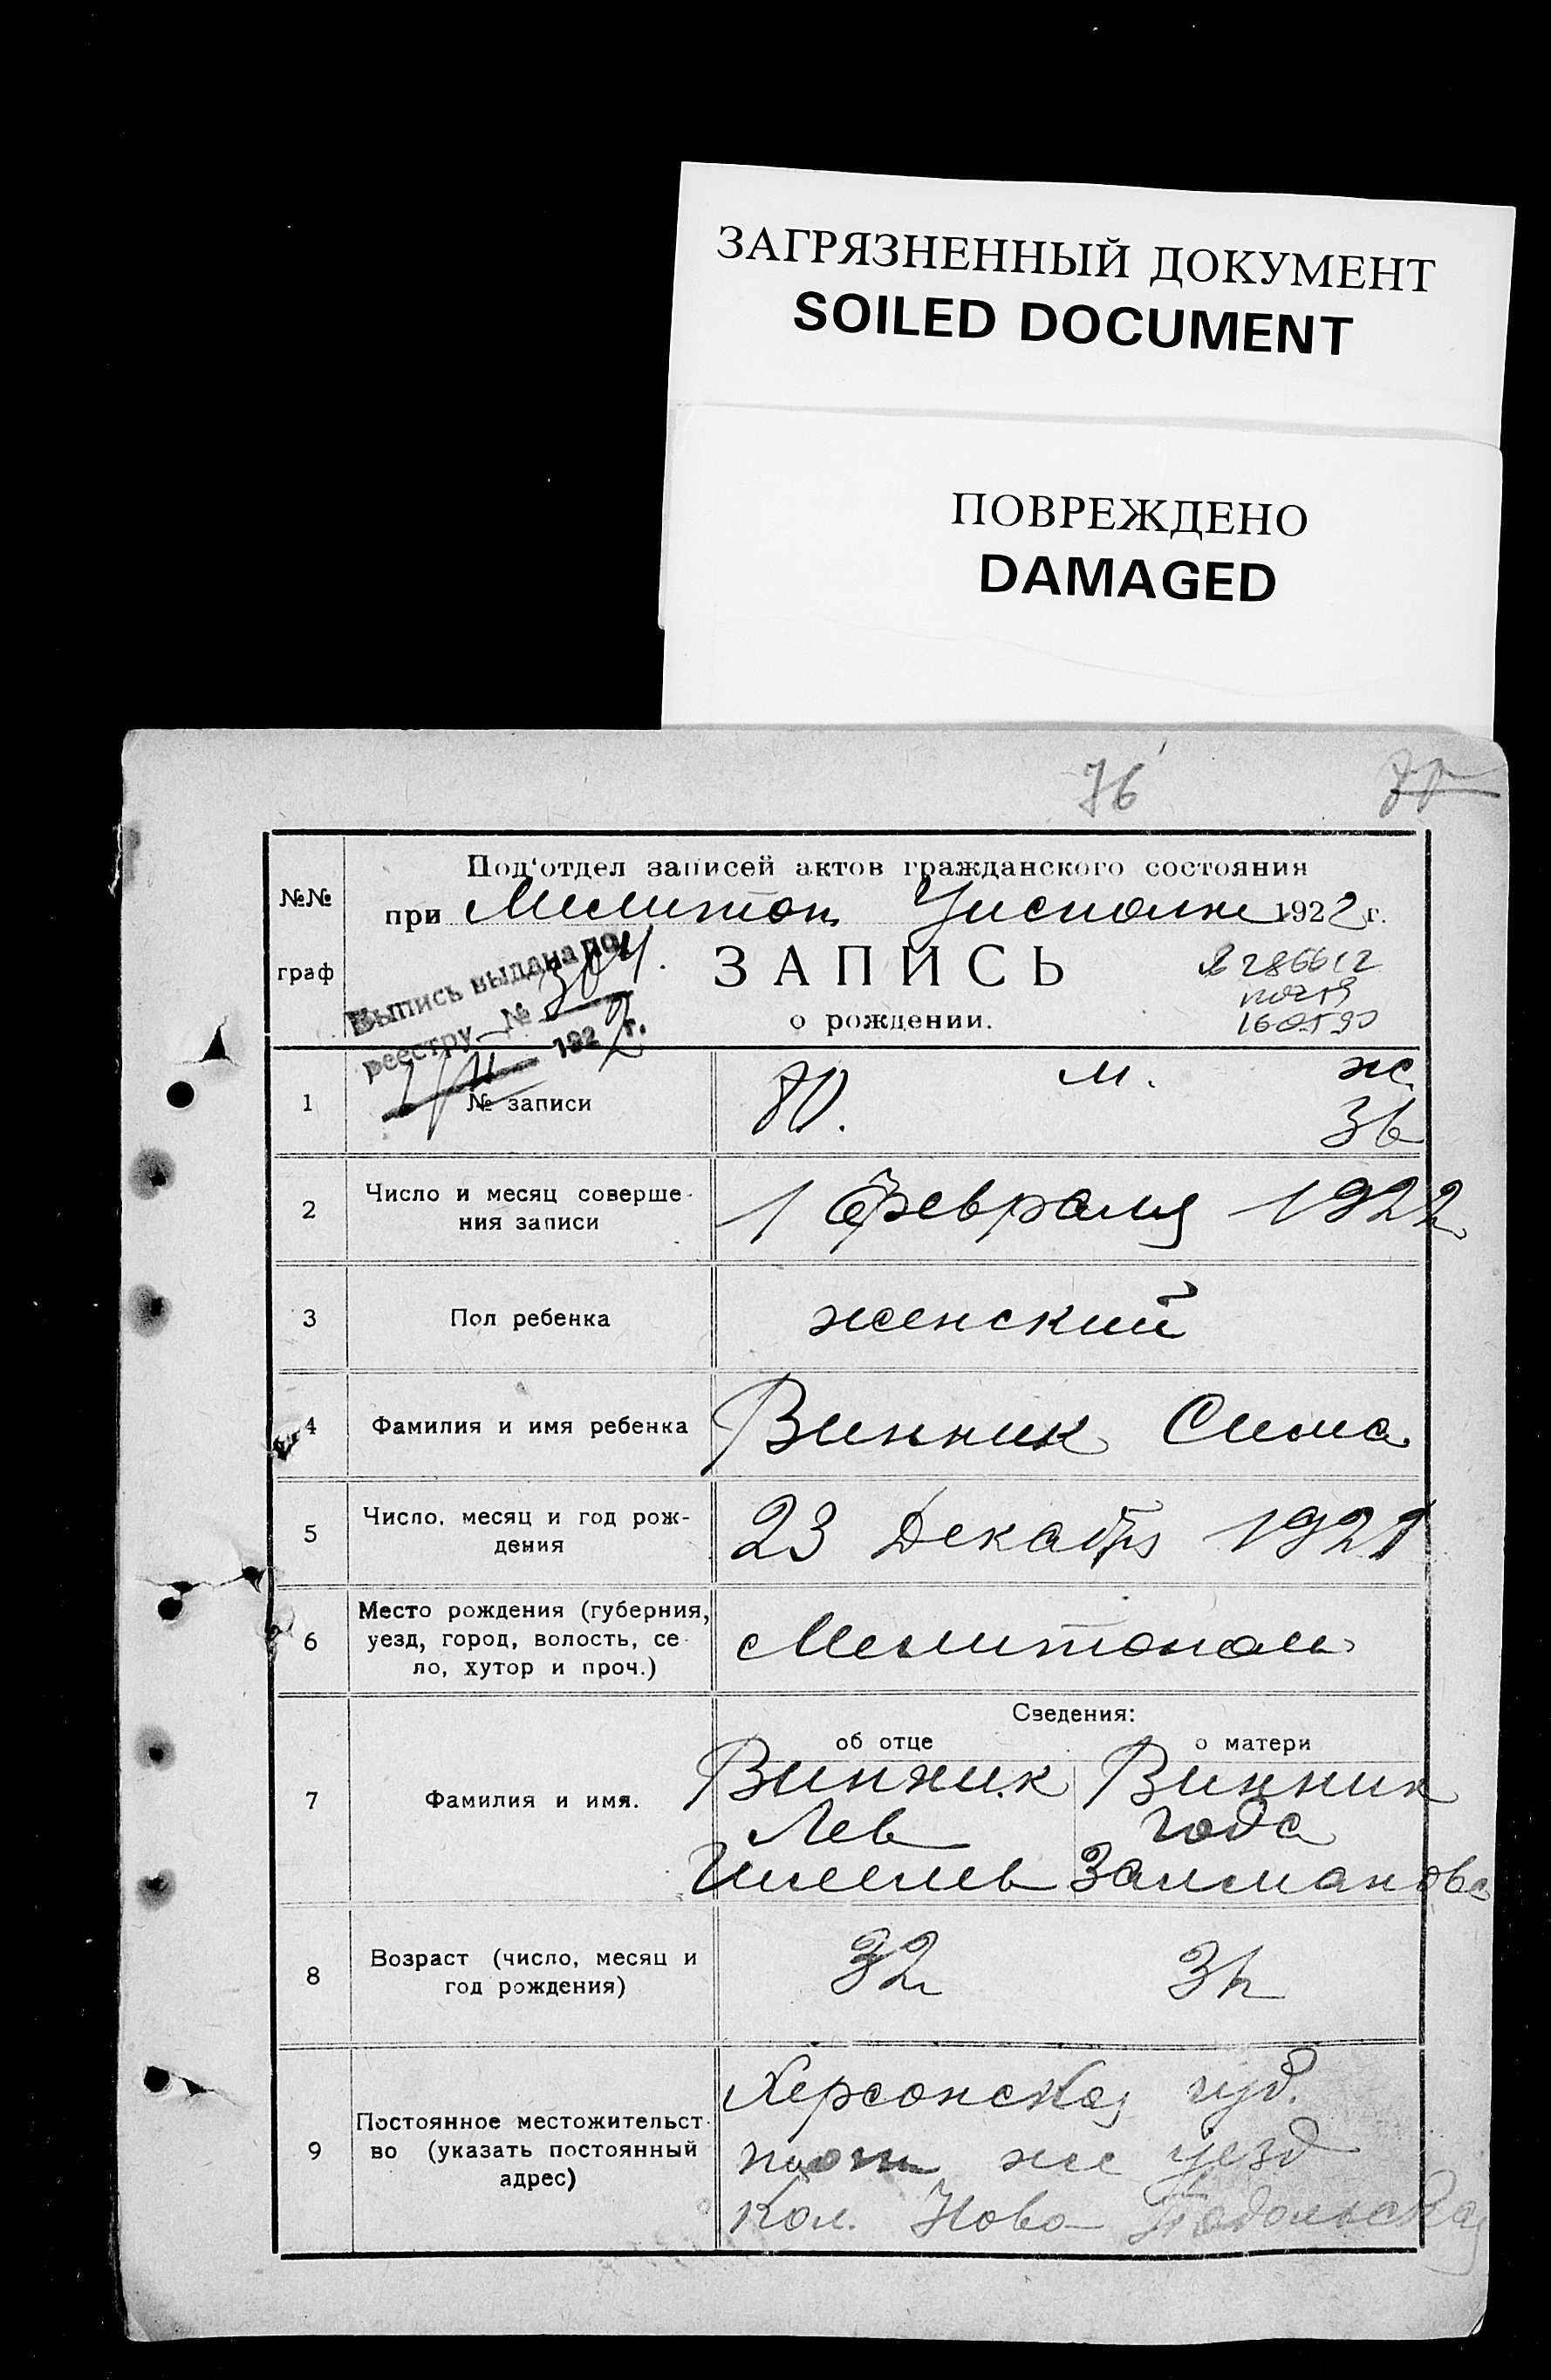 ЗАГРЯЗНЕННЫЙ ДОКУМЕНТ
SOILED DOCUMENT
ПОВРЕЖДЕНО
DAMAGED
76
№№
граф
Под'отдел записей актов гражданского состояния
при Мелитоп Уисполке 1922 г.
Выпись выдана по
реестру № 304.
1922 г.
ЗАПИСЬ
о рождении.
286612
160590
1
№ записи
80.
м.
ж
36
2
Число и месяц соверше-
ния записи
1 февраля 1922
3
Пол ребенка
женский
4
Фамилия и имя ребенка
Винник Сима
5
Число, месяц и год рож-
дения
23 Декабря 1921
6
Место рождения (губерния,
уезд, город, волость, се-
ло, хутор и проч.)
Мелитополь
Сведения:
об отце
о матери
7
Фамилия и имя.
Винник
Лев
Винник
Года
Залмановa
8
Возраст (число, месяц и
год рождения)
32
9
Постоянное местожительст-
во (указать постоянный
адрес)
Херсонская губ.
же уезд
Кол. Ново-Подольская